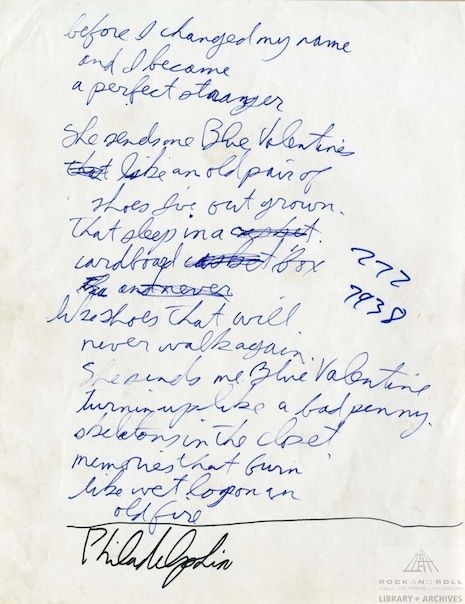 before I changed my name
and I became
a perfect stranger
She sends me Blue Valentines
that like an old pair of
shoes I've out grown.
That sleep in a
cardboard box
and never
like shoes that will
never walk again.
She sends me Blue Valentine
turnin up like a bad penny.
skeletons in the closet
memories that burn
like wet logs on an
old fire
277
7938
Philadelphia
ROCK AND ROLL
HALL OF FAME + MUSEUM
LIBRARY + ARCHIVES